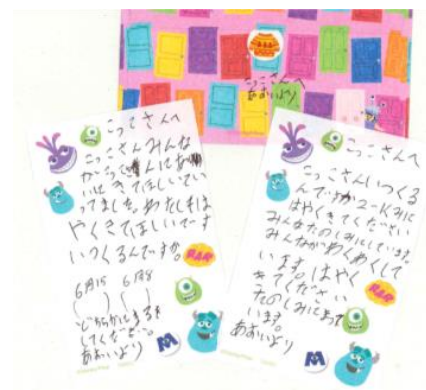 こっこさんへ
あおいより
こっこさんへ
こっこさんみんな
いにきてほしいてい
ってました。わたしもは
やくきてほしいです
いつくるんですか。
6月15 6月8
( ) ( )
どちらかにまるを
してください。
あおいより
こっこさんへ
こっこさんいつくる
んですか2-Kみに
はやくきてください
みんなたのしみにしています。
みんながわくわくして
います。はやく
きてください
たのしみにまって
います。
あおいより
RAR
RAR
M
M